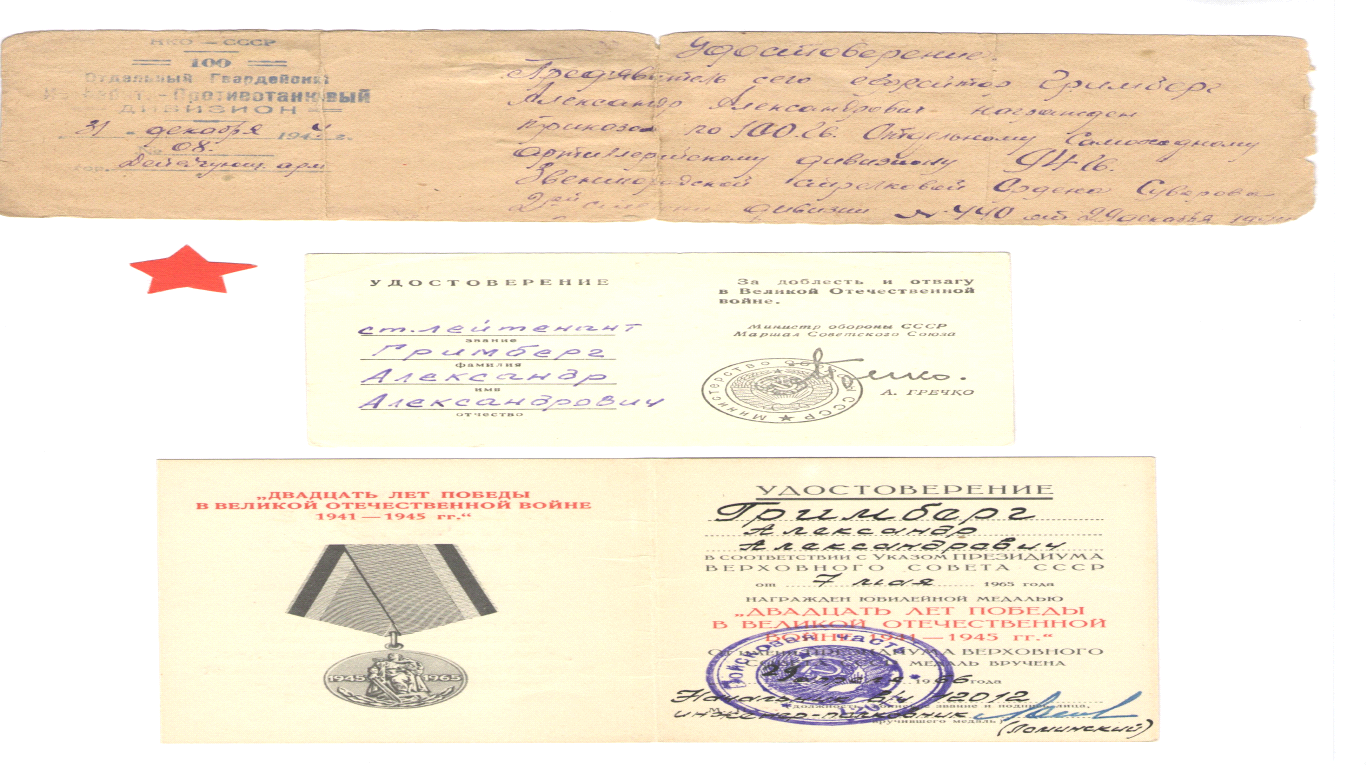 НКО – СССР
100
Отдельный Гвардейск.
Противотанковый
ДИВИЗИОН
31 декабря 1944 г.
№ 08.
Действующ. арм
Удостоверение.
Предъявитель сего ефрейтор Гримберг
Александр Александрович награжден
приказом по 100 Гв. Отдельному Самоходному
артиллерийскому дивизиону 94 Гв.
Звенигородской стрелковой Ордена Суворова
2-ой степени дивизии № 440 от 29 декабря
УДОСТОВЕРЕНИЕ
ст. лейтенант
звание
Гримберг
фамилия
Александр
имя
Александрович
отчество
За доблесть и отвагу
в Великой Отечественной
войне.
Министр обороны СССР
Маршал Советского Союза
Министерство обороны СССР
А. ГРЕЧКО
„ДВАДЦАТЬ ЛЕТ ПОБЕДЫ
В ВЕЛИКОЙ ОТЕЧЕСТВЕННОЙ ВОЙНЕ
1941—1945 гг.“
1945 1965
УДОСТОВЕРЕНИЕ
Гримберг
Александр
Александрович
В СООТВЕТСТВИИ С УКАЗОМ ПРЕЗИДИУМА
ВЕРХОВНОГО СОВЕТА СССР
от 7 мая 1965 года
НАГРАЖДЕН ЮБИЛЕЙНОЙ МЕДАЛЬЮ
„ДВАДЦАТЬ ЛЕТ ПОБЕДЫ
В ВЕЛИКОЙ ОТЕЧЕСТВЕННОЙ
ВОЙНЕ 1941—1945 гг.“
ОТ ИМЕНИ ПРЕЗИДИУМА ВЕРХОВНОГО
МЕДАЛЬ ВРУЧЕНА
1966 года
Войсковая часть
Начальник в/ч 12012
инженер-полковник
вручившего медаль)
(Ломинский)